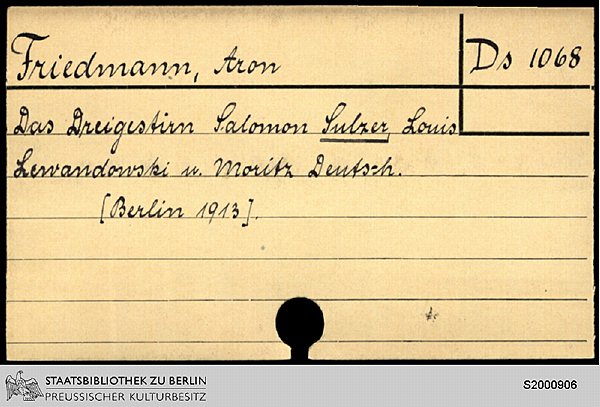 Friedmann, Aron
Ds 1068
Das Dreigestirn Salomon Sulzer, Louis
Lewandowski u. Moritz Deutsch.
[Berlin 1913].
STAATSBIBLIOTHEK ZU BERLIN
PREUSSISCHER KULTURBESITZ
S2000906